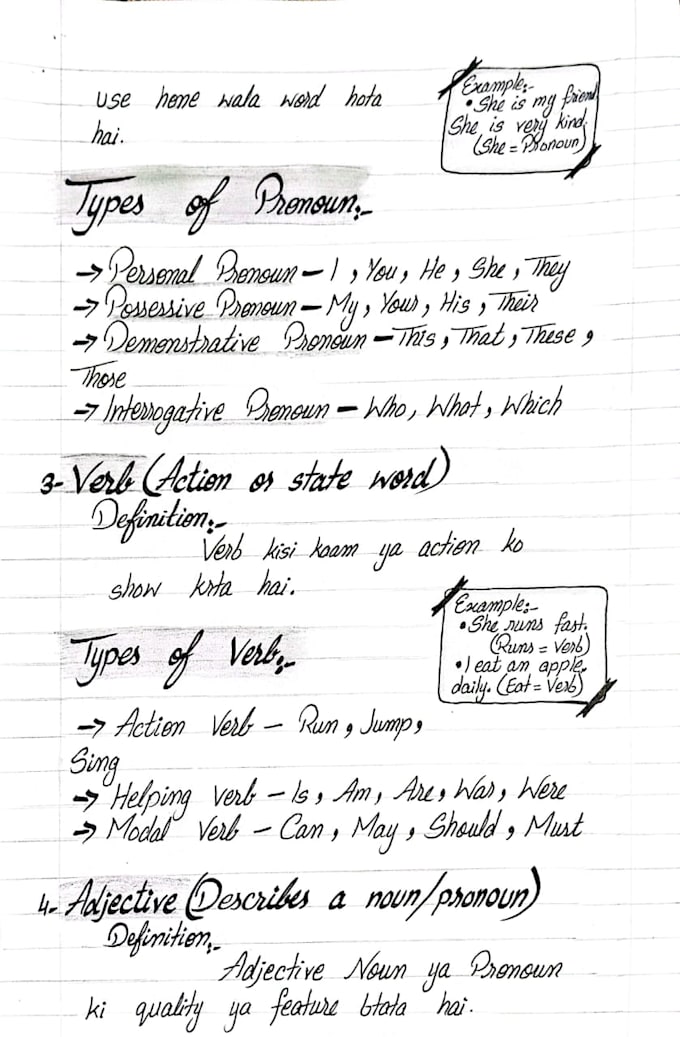 use hone wala word hota
hai.
Example:-
• She is my friend
She is very kind.
(She = Pronoun)
Types of Pronoun:-
→ Personal Pronoun – I, You, He, She, They
→ Possessive Pronoun – My, Your, His, Their
→ Demonstrative Pronoun – This, That, These,
Those
→ Interrogative Pronoun – Who, What, Which
3- Verb (Action or state word)
Definition:-
Verb kisi koam ya action ko
show krta hai.
Example:-
• She runs fast.
(Runs = Verb)
• I eat an apple.
daily. (Eat = Verb)
Types of Verb:-
→ Action Verb – Run, Jump,
Sing
→ Helping Verb – Is, Am, Are, Was, Were
→ Modal Verb – Can, May, Should, Must
4- Adjective (Describes a noun/pronoun)
Definition:-
Adjective Noun ya Pronoun
ki quality ya feature btata hai.